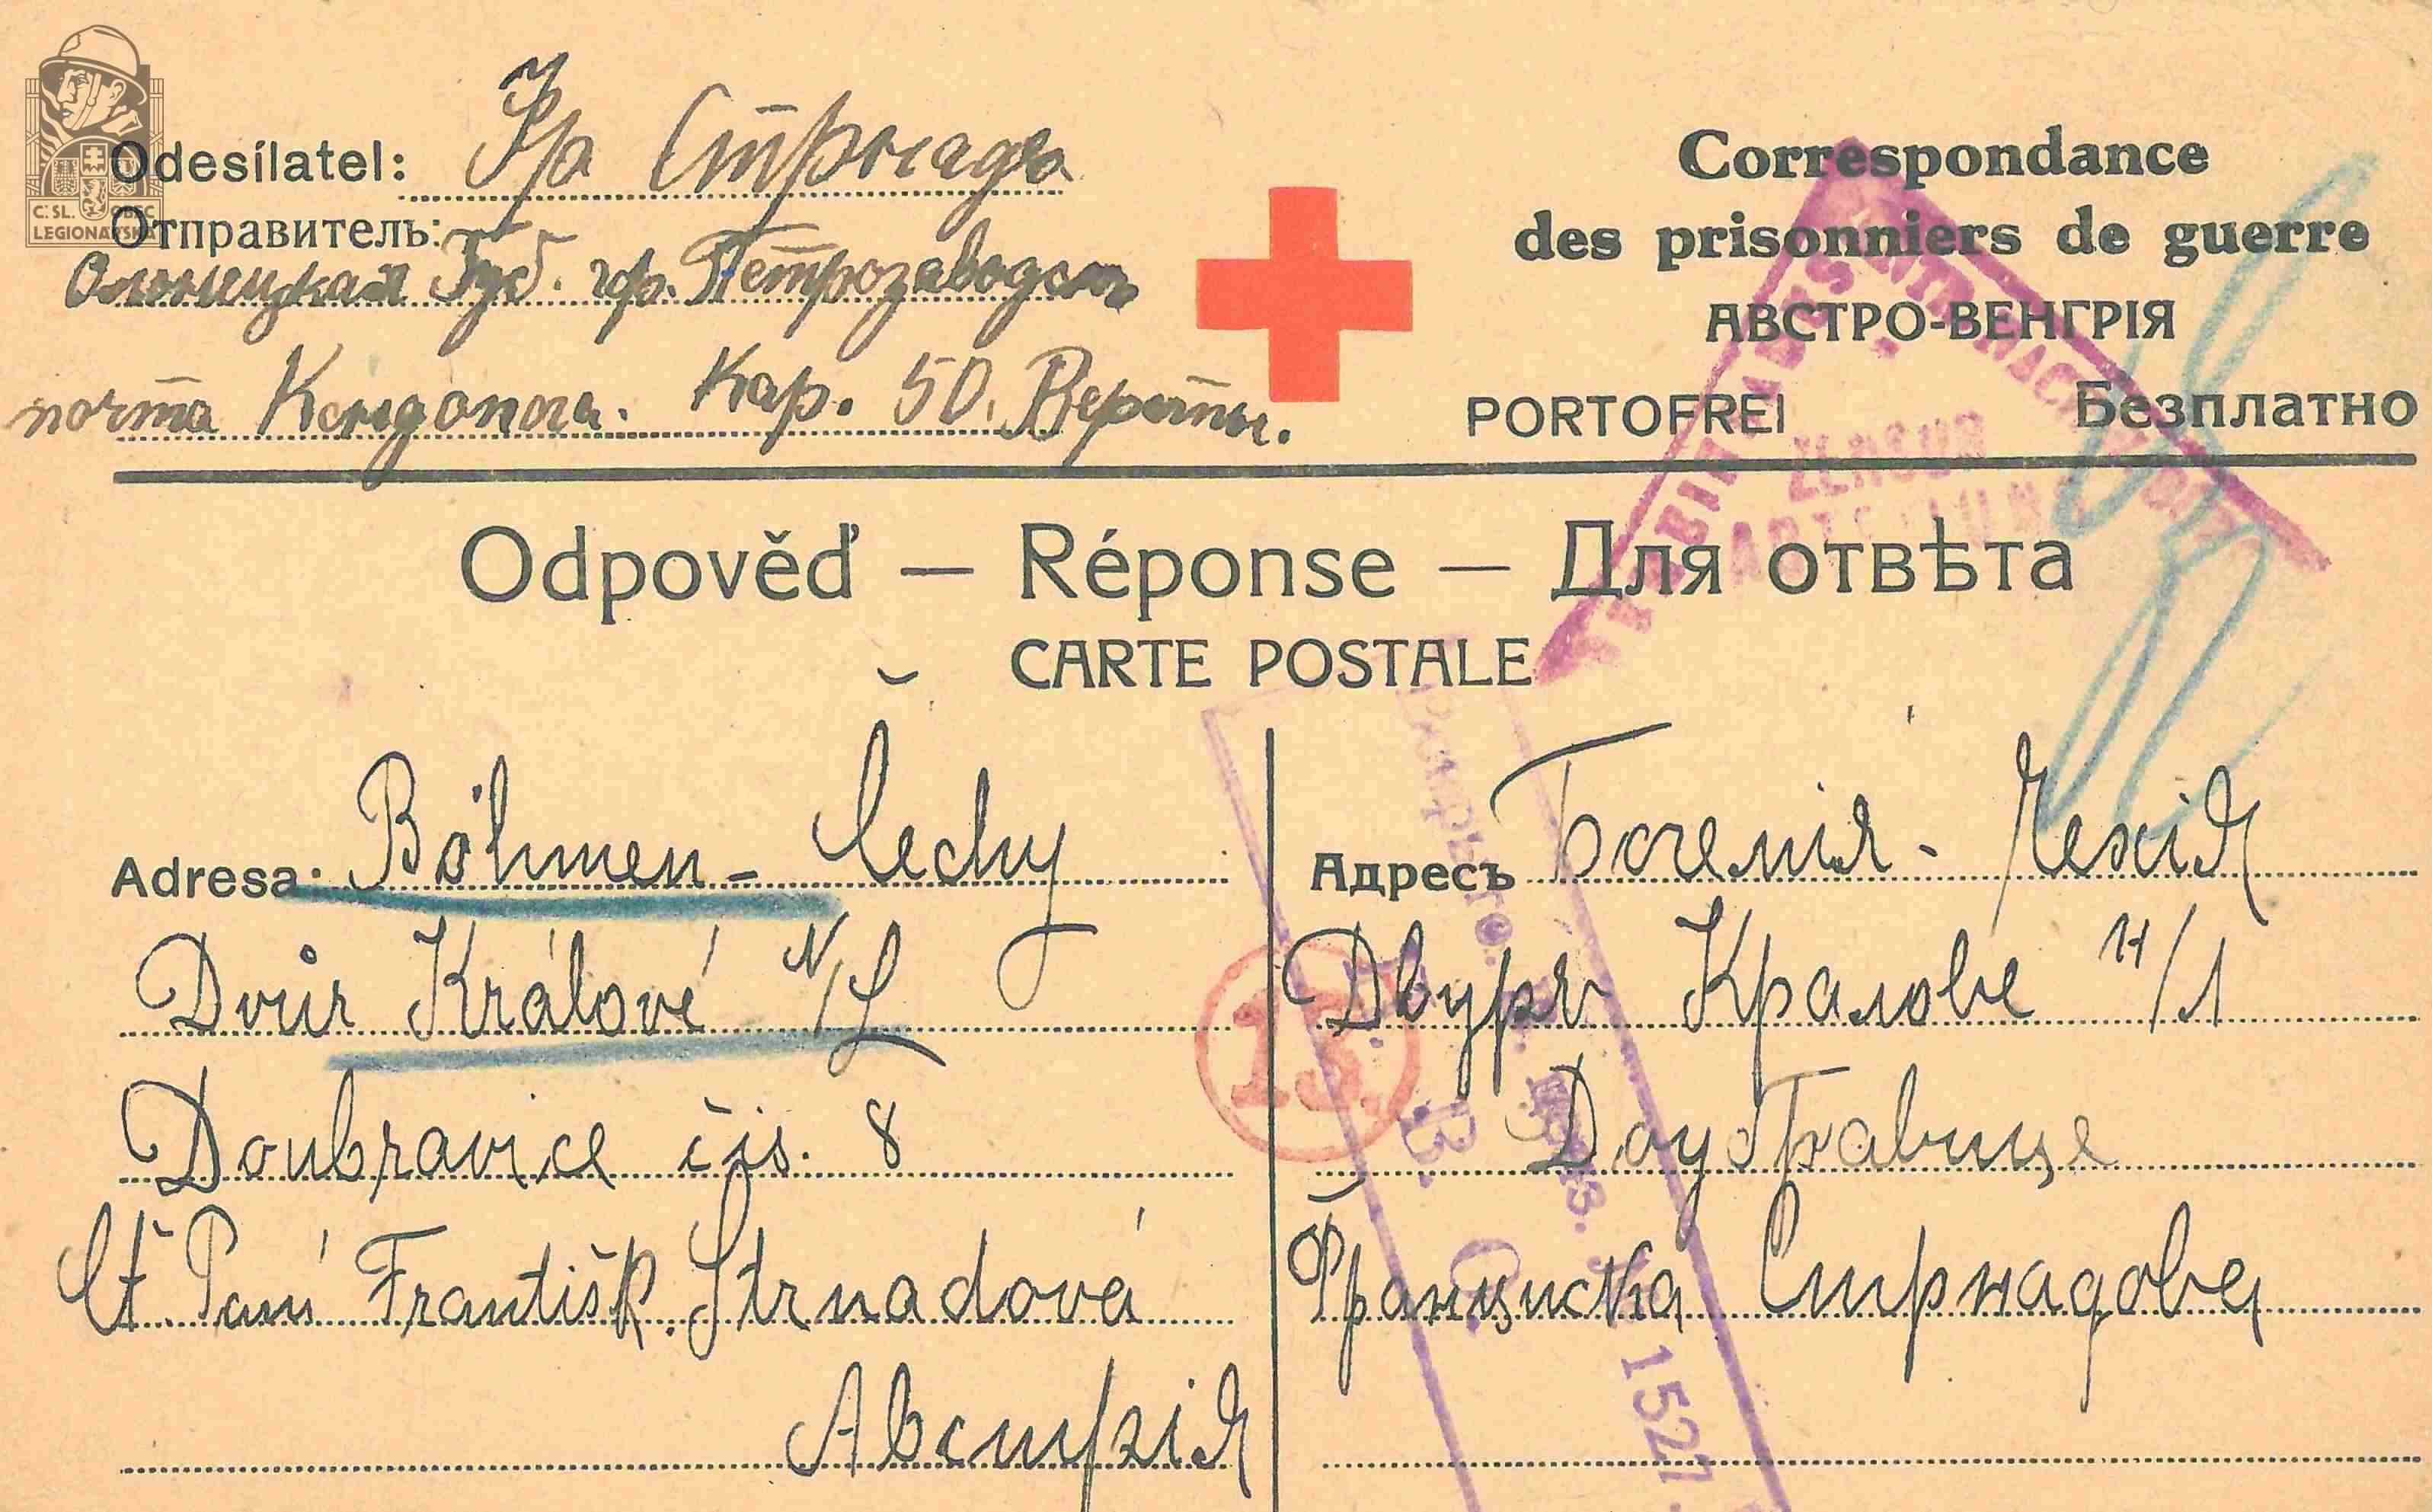 Odesílatel: Фр Стрнадъ
Отправитель:
Олонецкая Губ. гр. Петрозаводскъ
почта Кондопога. Кар. 50. Версты.
C.SL. OBEC
LEGIONÁŘSKÁ
Correspondance
des prisonniers de guerre
АВСТРО-ВЕНГРІЯ
PORTOFREI Безплатно
ZENSUR
Odpověď — Réponse — Для отвѣта
CARTE POSTALE
Adresa: Böhmen - Čechy
Dvůr Králové N/L
Doubravice čis. 8
Ct. Paní Františk. Strnadová
Австрія
Адресъ Богемія - Чехія
Двуръ Кралове н/Л
Доубравице
Франциска Стрнадова
13.
В. С.
1527.